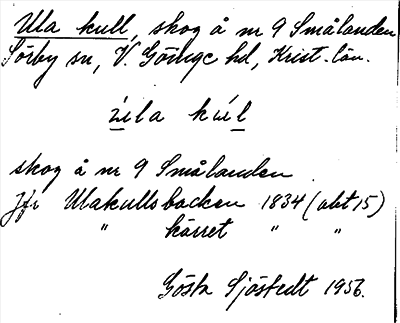 Ula kull, skog å nr 9 Smålanden
Sörby sn, V. Göinge hd, Krist. län.
ùla kúl
skog å nr 9 Smålanden
Jfr Ulakullsbacken 1834 (akt 15)
" kärret " "
Gösta Sjöstedt 1956.